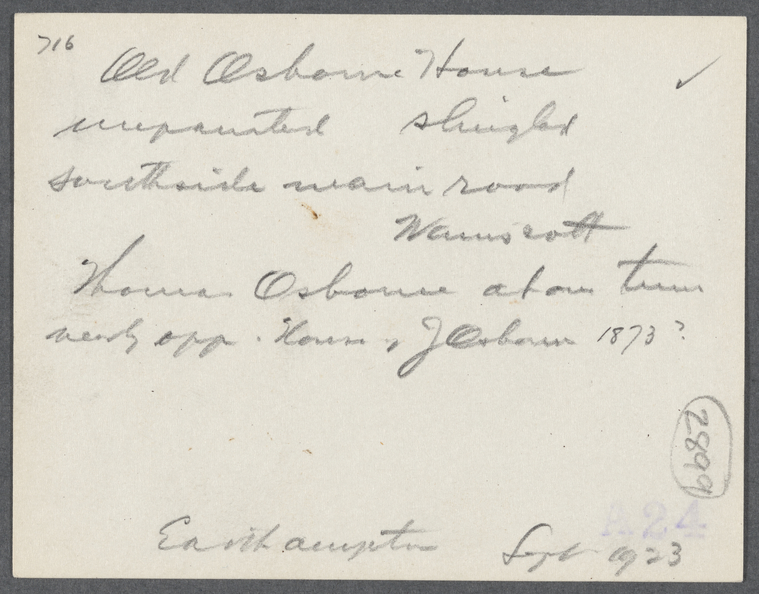 716
Old Osborne House ✓
unpainted shingled
southside main road
Wainscott
Thomas Osborne at one time
nearly opp. House of J Osborn 1873?
2899
A24
Easthampton Sept 1923